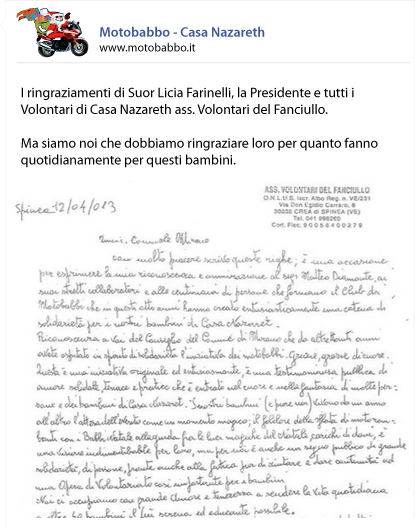 Motobabbo - Casa Nazareth
www.motobabbo.it
I ringraziamenti di Suor Licia Farinelli, la Presidente e tutti i
Volontari di Casa Nazareth ass. Volontari del Fanciullo.
Ma siamo noi che dobbiamo ringraziare loro per quanto fanno
quotidianamente per questi bambini.
ASS. VOLONTARI DEL FANCIULLO
O.N.L.U.S. Iscr. Albo Reg. n. VE/031
Via Don Egidio Carraro, 8
30030 CREA di SPINEA (VE)
Tel. 041
Cod. Fisc. 90056400279
Spinea 12/04/013
Comunale Mirano
con molto piacere scrivo queste righe; è una occasione
per esprimere la mia riconoscenza e ammirazione al sig. Matteo Diamante, ai
suoi stretti collaboratori e alle centinaia di persone che formano il Club dei
Motobabbi che in questi otto anni hanno creato entusiasticamente una catena di
solidarietà per i nostri bambini di Casa Nazaret.
Riconoscenza a Voi del Consiglio del Comune di Mirano che da altrettanti anni
avete ospitato l'iniziativa dei motobabbi. Grazie, grazie di cuore.
Questa è una iniziativa originale ed entusiasmante, è una testimonianza pubblica di
amore solidale, tenace e pratico che è entrato nel cuore e nella fantasia di molte per-
sone e dei bambini di Casa Nazaret. I nostri bambini (e pure noi) vivono da un anno
all'altro l'attesa dell'evento come un momento magico; il folclore della sfilata di motoren-
tanti con i Babbi Natale fra le luci magiche del Natale carichi di doni, è
una visione indimenticabile per loro, ma per noi è anche un segno pubblico di grande
solidarietà, di persone, pronte anche alla fatica pur di aiutare e dare continuità ad
una Opera di Volontariato così importante per i bambini.
Noi ci occupiamo con grande Amore e tenerezza a rendere la vita quotidiana
a oltre 40 bambini il più serena ed educante possibile.